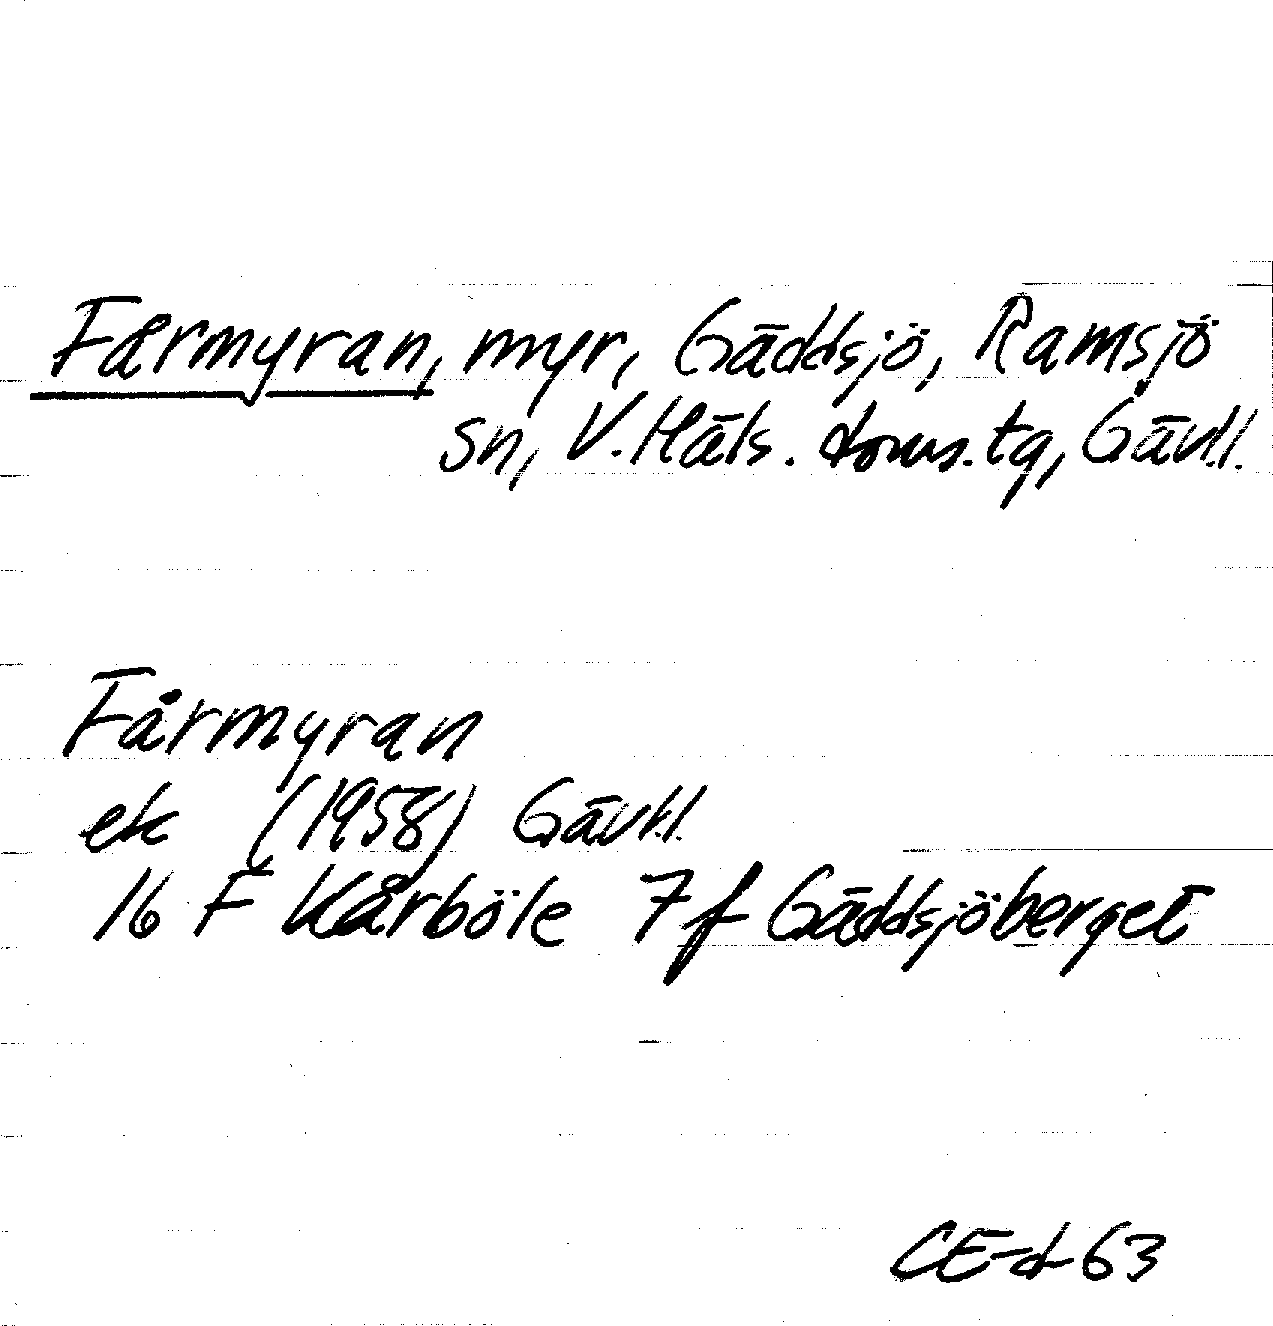 Færmyran, myr, Gäddsjö, Ramsjö
sn, V. Häls. doms.tg, Gävl.l.
Fårmyran
ek (1958) Gävl.l.
16 F Kårböle 7f Gäddsjöberget
CE-d 63